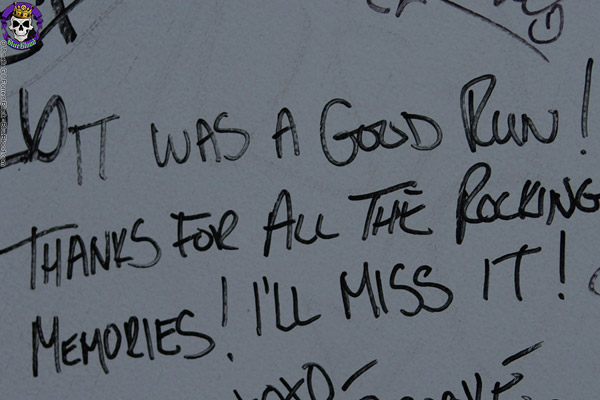 IT WAS A GOOD RUN!
THANKS FOR ALL THE ROCKING
MEMORIES! I'LL MISS IT!
XOXO-